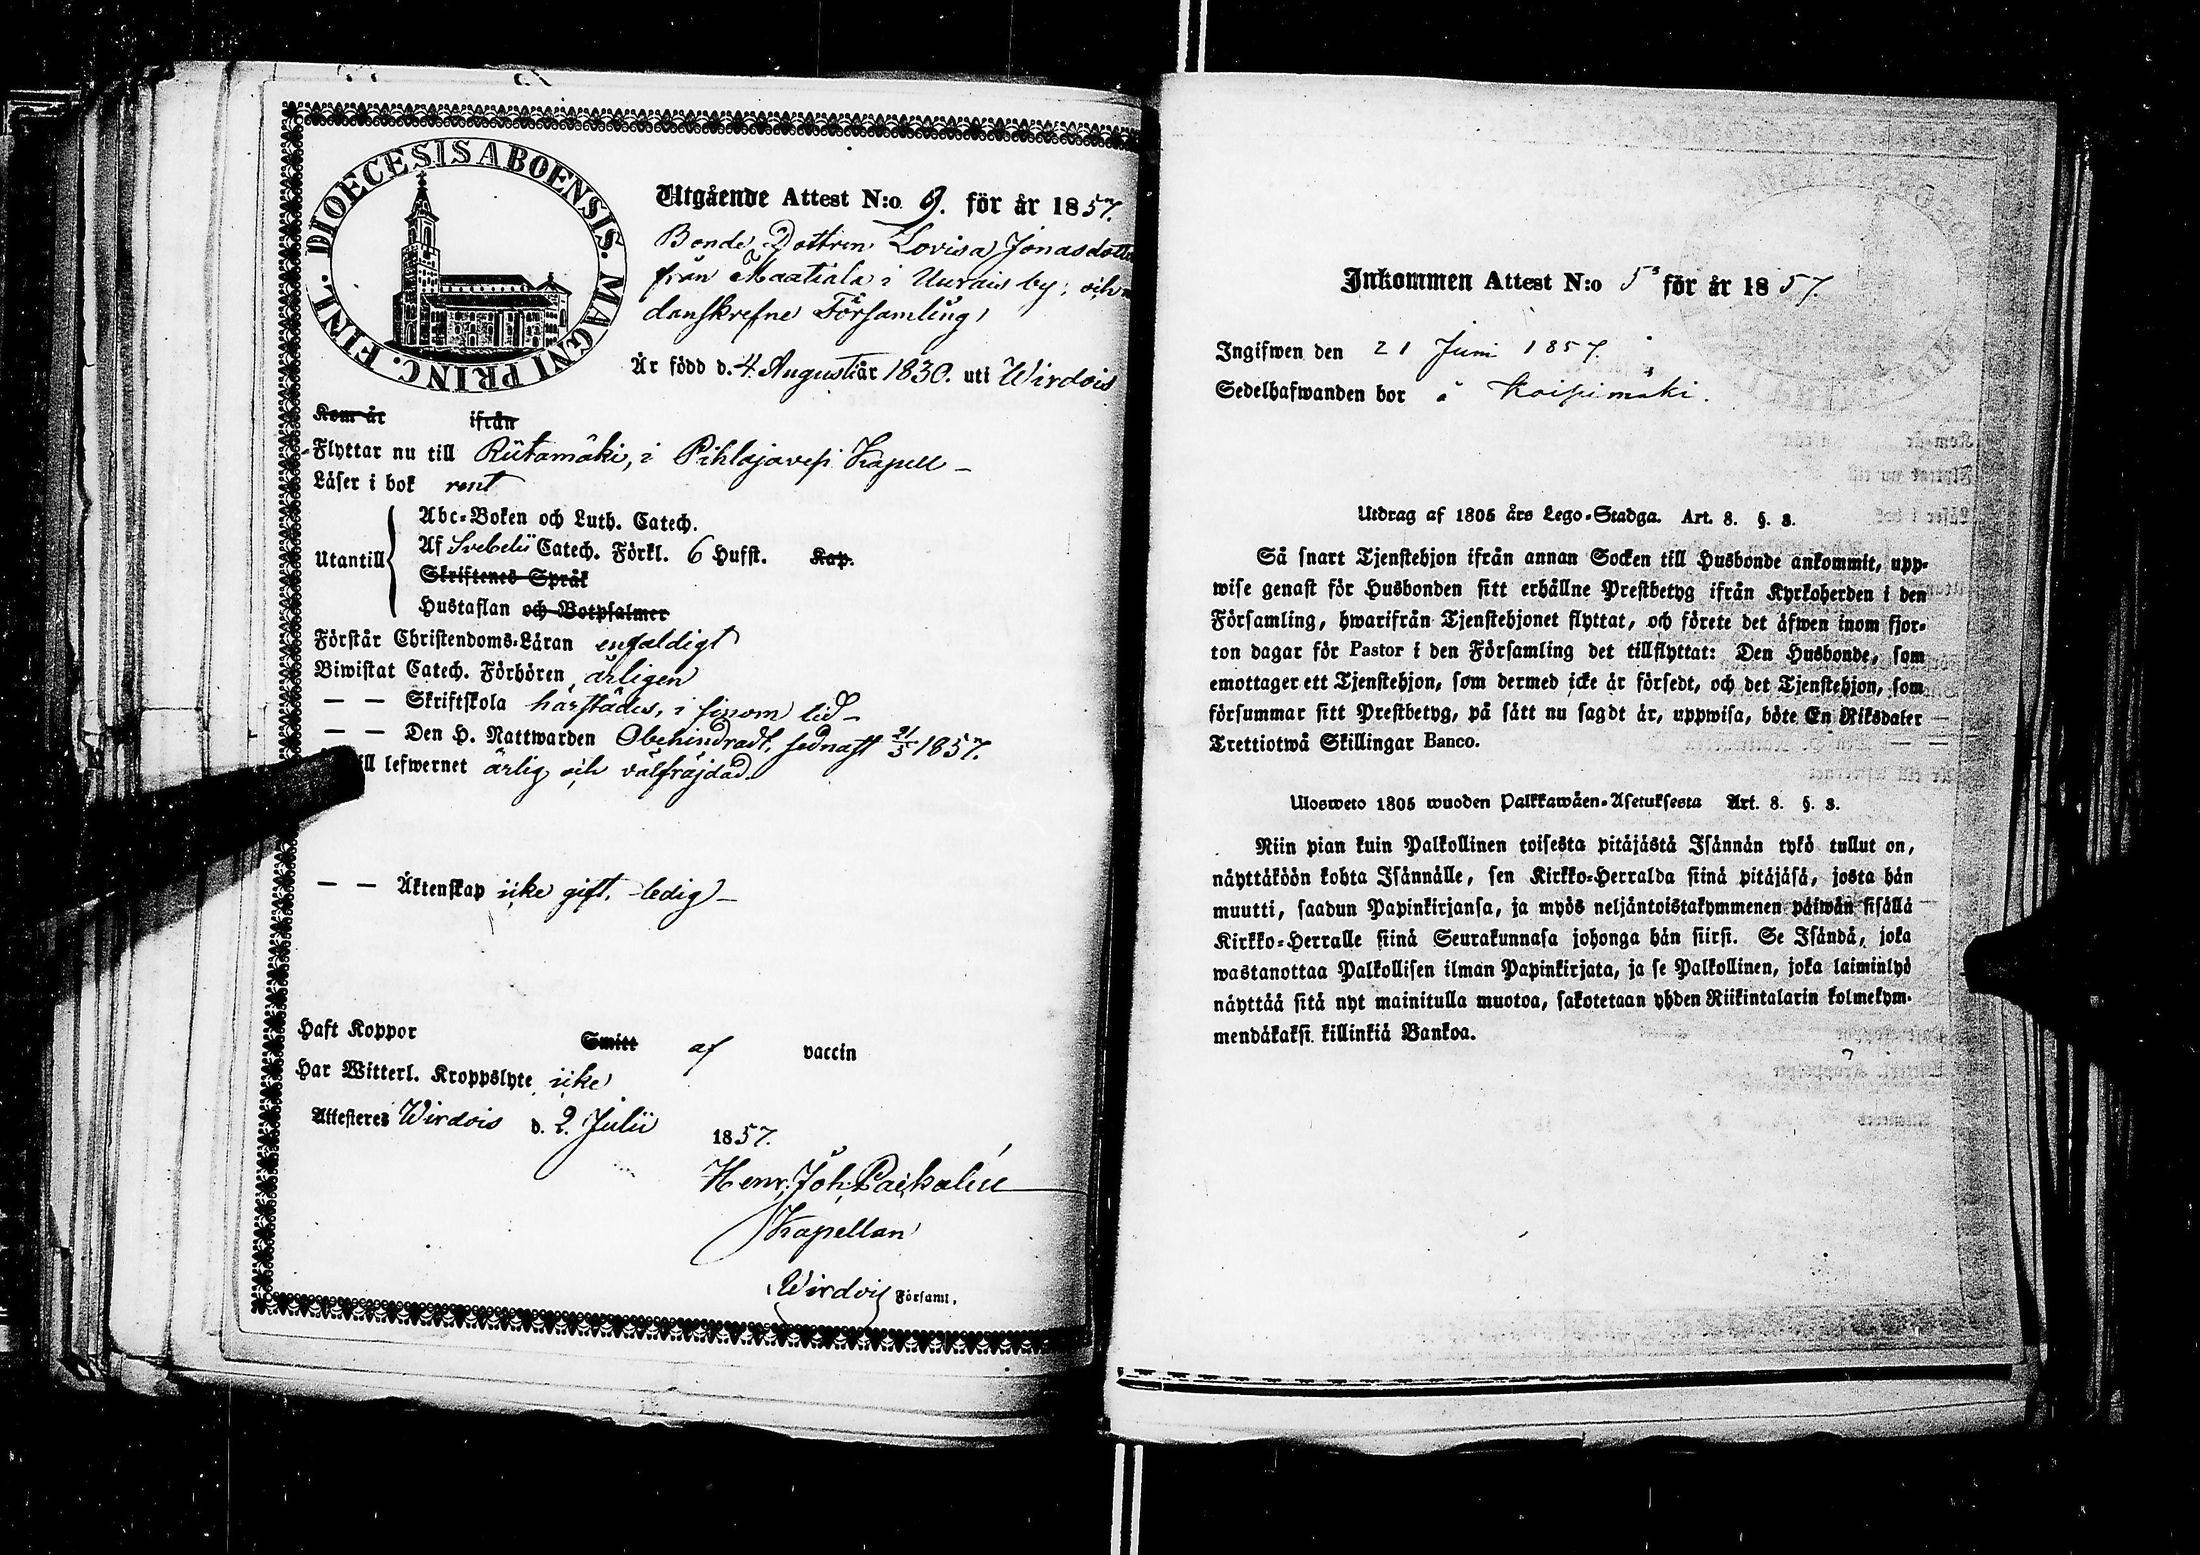 DIOECESIS ABOENSIS. MAGNI PRINC. FINL.
Utgående Attest N:o 9. för år 1857.
Bonde Dottren Lovisa Jonasdott
från Maatiala i Uurais by, och
danskrefne Församling,
Är född d. 4. Augusti år 1830. uti Wirdois
Kom år ifrån
Flyttar nu till Riitamäki, i Pihlajavesi Kapell –
Läser i bok rent
Utantill
Abc-Boken och Luth. Catech.
Af Svebelii Catech. Förkl. 6 Hufst. Kap.
Skriftenes Språk
Hustaflan och Botpsalmer
Förstår Christendoms-Läran enfaldigt
Biwistat Catech. Förhören årligen
– – Skriftskola härstädes, i sinom tid –
– – Den H. Nattwarden Obehindradt, sednast 21/5 1857.
ill lefwernet ärlig och välfräjdad.
– – Äktenskap icke gift, ledig –
Haft Koppor Smitt af vaccin
Har Witterl. Kroppslyte icke
Attesteres Wirdois d. 2. Julii 1857.
Henr. Joh.
Kapellan
Wirdois Församl.
Inkommen Attest N:o 53 för år 1857.
Ingifwen den 21 Juni 1857.
Sedelhafwanden bor å
Utdrag af 1805 års Lego-Stadga. Art. 8. §. 3.
Så snart Tjenstehjon ifrån annan Socken till Husbonde ankommit, upp-
wise genast för Husbonden sitt erhållne Prestbetyg ifrån Kyrkoherden i den
Församling, hwarifrån Tjenstehjonet flyttat, och förete det äfwen inom fjor-
ton dagar för Pastor i den Församling det tillflyttat: Den Husbonde, som
emottager ett Tjenstehjon, som dermed icke är försedt, och det Tjenstehjon, som
försummar sitt Prestbetyg, på sätt nu sagdt är, uppwisa, böte En Riksdaler
Trettiotwå Skillingar Banco.
Ulosweto 1805 wuoden Palkkawäen-Asetuksesta Art. 8. §. 3.
Niin pian kuin Palkollinen toisesta pitäjästä Isännän tykö tullut on,
näyttäköön kohta Isännälle, sen Kirkko-Herralda siinä pitäjäsä, josta hän
muutti, saadun Papinkirjansa, ja myös neljäntoistakymmenen päiwän sisällä
Kirkko-Herralle siinä Seurakunnasa johonga hän siirsi. Se Isändä, joka
wastanottaa Palkollisen ilman Papinkirjata, ja se Palkollinen, joka laiminlyö
näyttää sitä nyt mainitulla muotoa, sakotetaan yhden Riikintalarin kolmekym-
mendäkaksi killinkiä Bankoa.